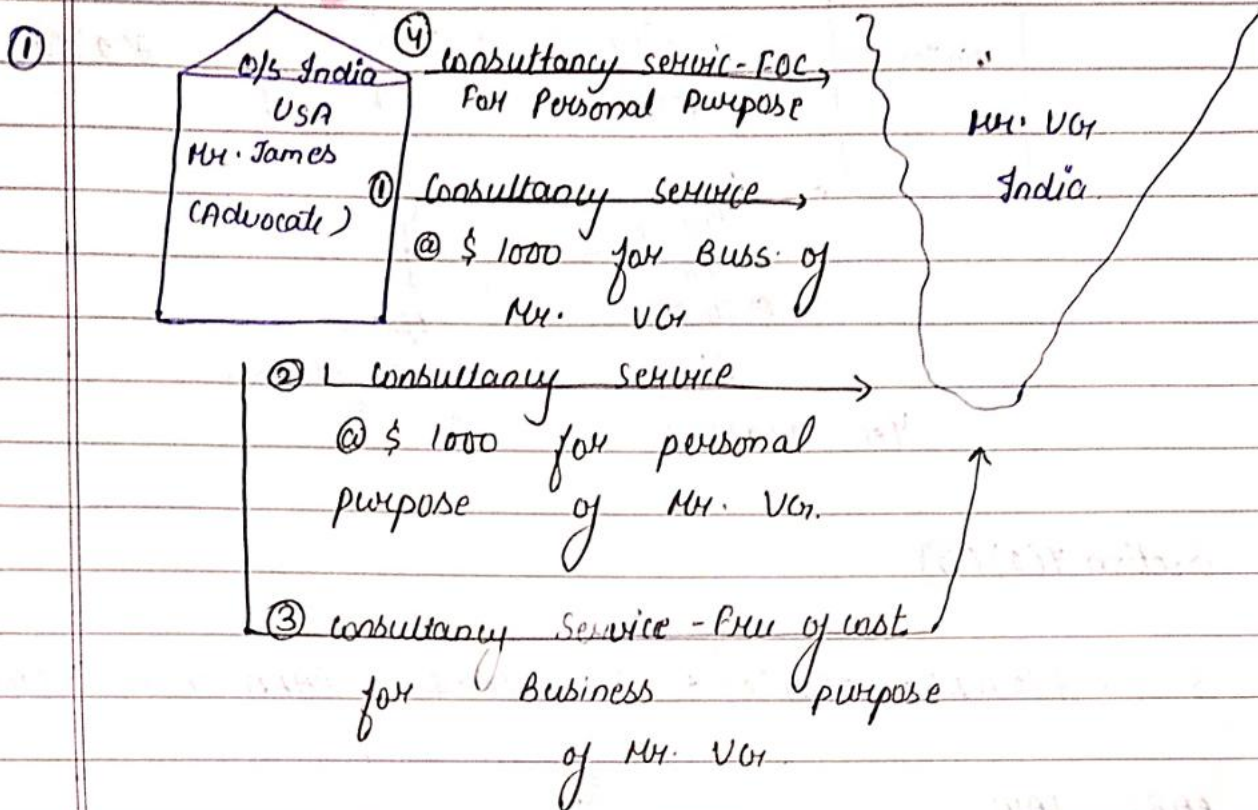 ①
O/s India
USA
Mr. James
(Advocate)
④ Consultancy servic - FOC
For Personal Purpose
Mr. VG
India
① Consultancy service
@ $ 1000 for Buss. of
Mr. VG
② Consultancy service
@ $ 1000 for personal
purpose of Mr. VG.
③ Consultancy Service - Free of cost
for Business purpose
of Mr. VG